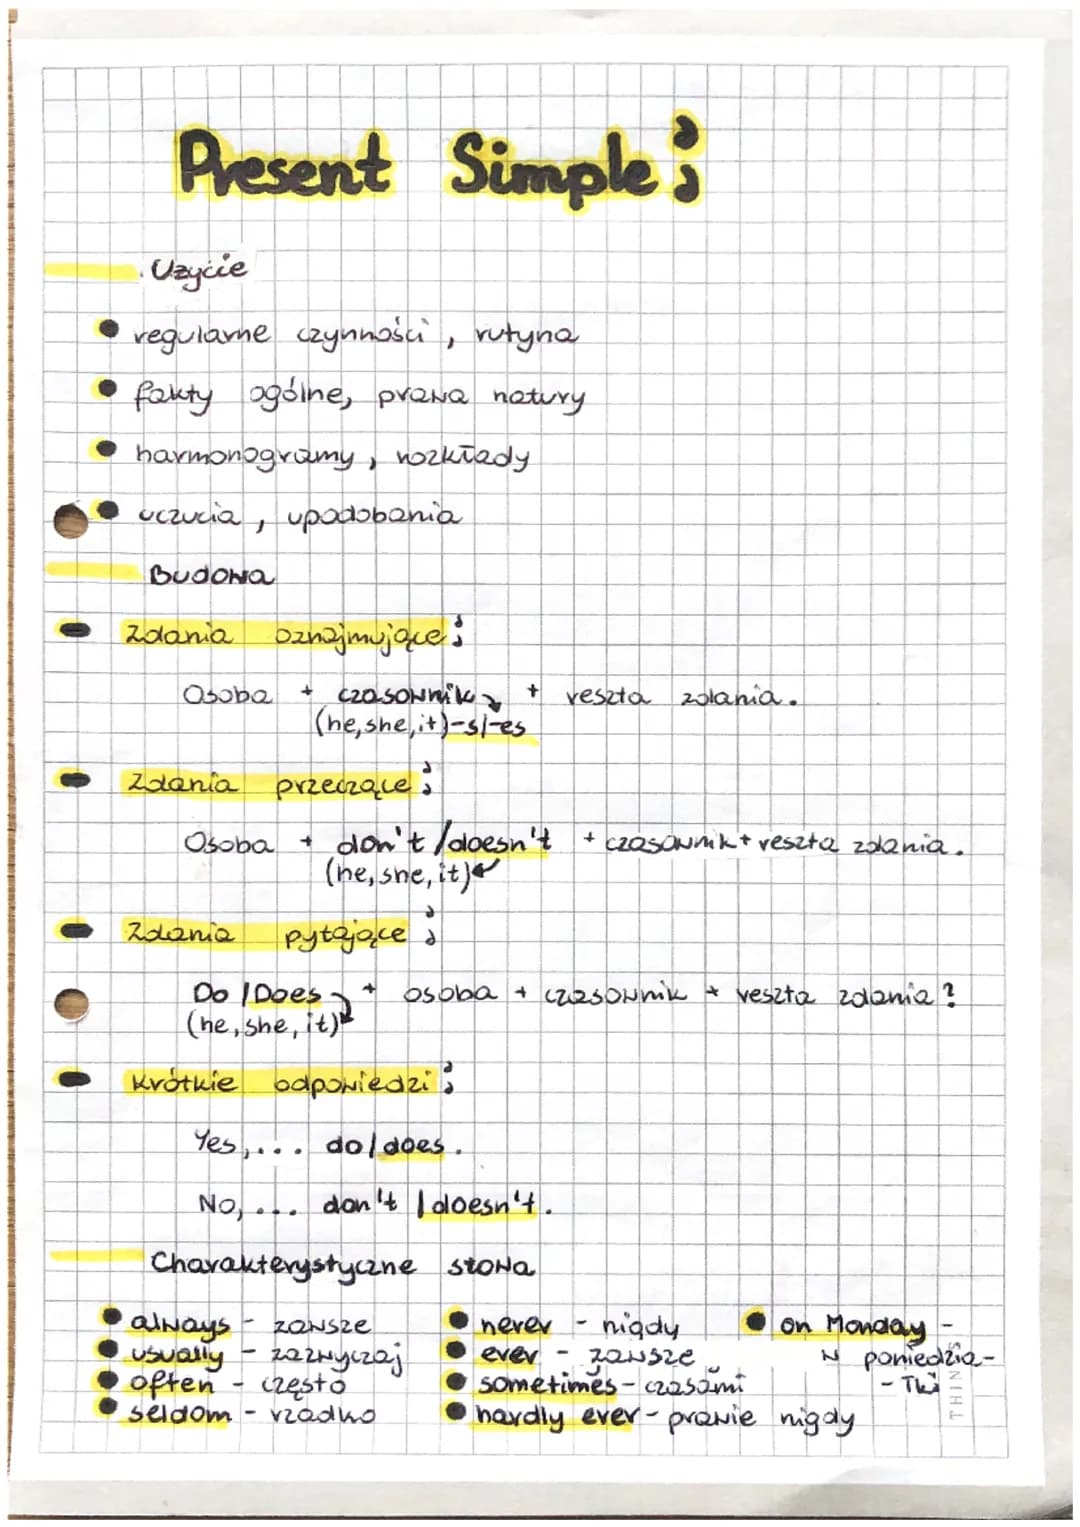 Present Simple:
Użycie
regularne czynności, rutyna
fakty ogólne, prawa natury
harmonogramy, rozkłady
uczucia, upodobania
Budowa
Zdania oznajmujące:
Osoba + czasownik + reszta zdania.
(he, she, it) -s/-es
Zdania przeczące:
Osoba + don't /doesn't + czasownik + reszta zdania.
(he, she, it)
Zdania pytające:
Do /Does + osoba + czasownik + reszta zdania?
(he, she, it)
Krótkie odpowiedzi:
Yes,... do/does.
No, ... don't /doesn't.
Charakterystyczne słowa
always - zawsze never - nigdy on Monday -
usually - zazwyczaj ever - zawsze w poniedzia-
often - często sometimes - czasami - łki
seldom - rzadko hardly ever - prawie nigdy
THINGS